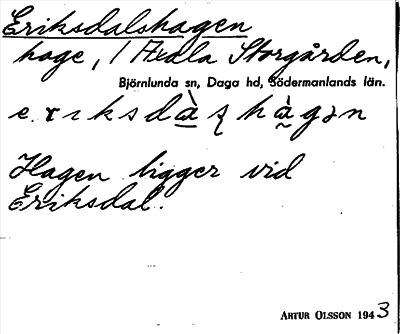 Eriksdalshagen
hage, 1 Axala Storgården,
Björnlunda sn, Daga hd, Södermanlands län.
Hagen ligger vid
Eriksdal.
ARTUR OLSSON 1943